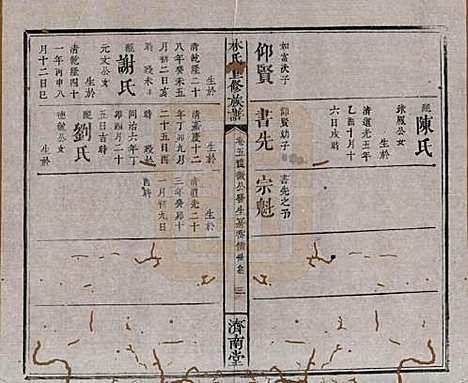 配陳氏
求鳳公女
清道光五年
乙酉十月十
六日戌時
仰賢
如富次子
書先
仰賢幼子
宗魁
書先之子
水氏重修族譜
濟南堂
生於
清乾隆二十
八年癸未五
月初二日亥
時 歿未
配謝氏
元文公女
生於
清乾隆四十
一年丙申八
月十二日巳
生於
清嘉慶十二
年丁卯九月
二十五日酉
時 歿於
同治六年丁
卯四月二十
五日吉時
配劉氏
德號公女
生於
清道光二十
三年癸卯十
一月初九日
酉時